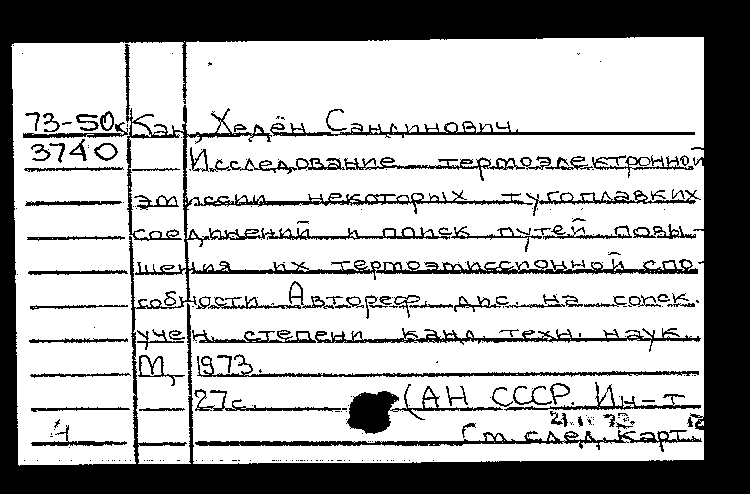 73-50к Кан, Хедён Сандинович.
3740 Исследование термоэлектронной
эмиссии некоторых тугоплавких
соединений и поиск путей повы-
шения их термоэмиссионной спо-
собности. Автореф. дис. на соиск.
учен. степени канд. техн. наук.
М., 1973.
27с. (АН СССР. Ин-т
4
См. след. карт.